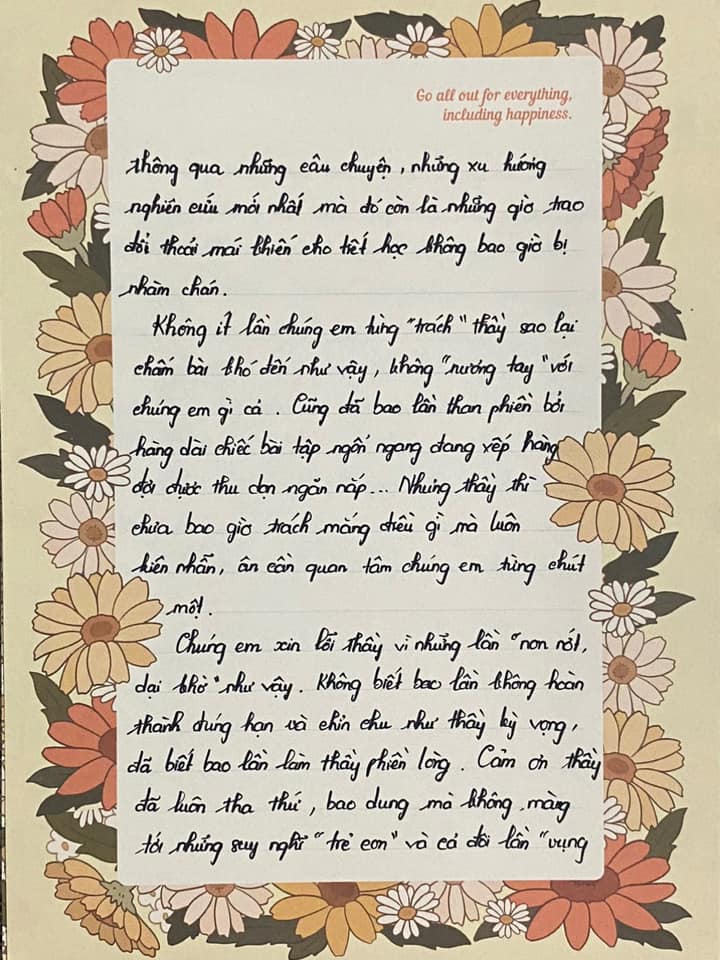 Go all out for everything,
including happiness.
thông qua những câu chuyện, những xu hướng
nghiên cứu mới nhất mà đó còn là những giờ trao
đổi thoải mái khiến cho tiết học không bao giờ bị
nhàm chán.
Không ít lần chúng em từng "trách" thầy sao lại
chấm bài khó đến như vậy, không "nương tay" với
chúng em gì cả. Cũng đã bao lần than phiền bởi
hàng dài chiếc bài tập ngổn ngang đang xếp hàng
đợi được thu dọn ngăn nắp... Nhưng thầy thì
chưa bao giờ trách mắng điều gì mà luôn
kiên nhẫn, ân cần quan tâm chúng em từng chút
một.
Chúng em xin lỗi thầy vì những lần "non nớt,
dại khờ" như vậy. Không biết bao lần không hoàn
thành đúng hạn và chỉn chu như thầy kỳ vọng,
đã biết bao lần làm thầy phiền lòng. Cảm ơn thầy
đã luôn tha thứ, bao dung mà không màng
tới những suy nghĩ "trẻ con" và cả đôi lần "vụng